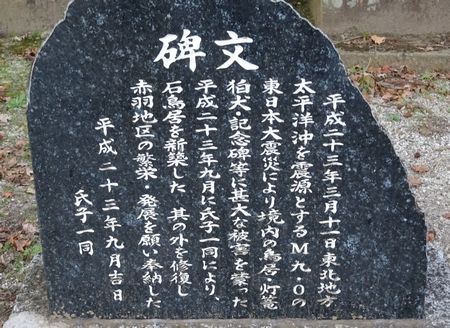 碑文
平成二十三年三月十一日東北地方
太平洋沖を震源とするM九.〇の
東日本大震災により境内の鳥居・灯篭
狛犬・記念碑等に甚大な被害を蒙った
平成二十三年九月に氏子一同により、
石鳥居を新築した 其の外を修復し
赤羽地区の繁栄・発展を願い奉納した
平成二十三年九月吉日
氏子一同